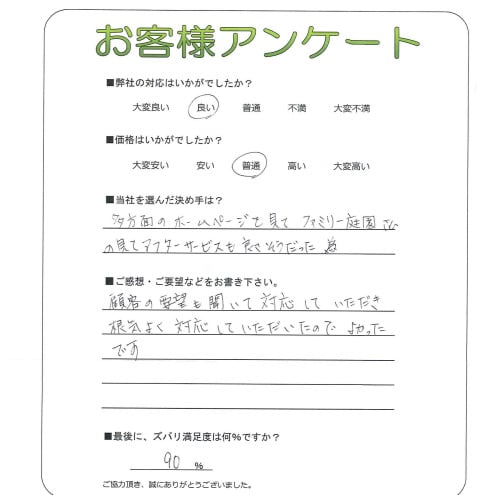 お客様アンケート
■弊社の対応はいかがでしたか？
大変良い 良い 普通 不満 大変不満
■価格はいかがでしたか？
大変安い 安い 普通 高い 大変高い
■当社を選んだ決め手は？
多方面のホームページを見て ファミリー庭園さん
の見てアフターサービスも良さそうだった
■ご感想・ご要望などをお書き下さい。
顧客の要望も聞いて対応していただき
根気よく対応していただいたので よかった
です
■最後に、ズバリ満足度は何％ですか？
90 ％
ご協力頂き、誠にありがとうございました。